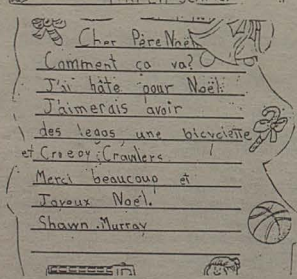 Cher Père Noël
Comment ça va?
J'ai hâte pour Noël.
J'aimerais avoir
des legos une bicyclette
et Creepy Crawlers.
Merci beaucoup et
Joyeux Noël.
Shawn Murray